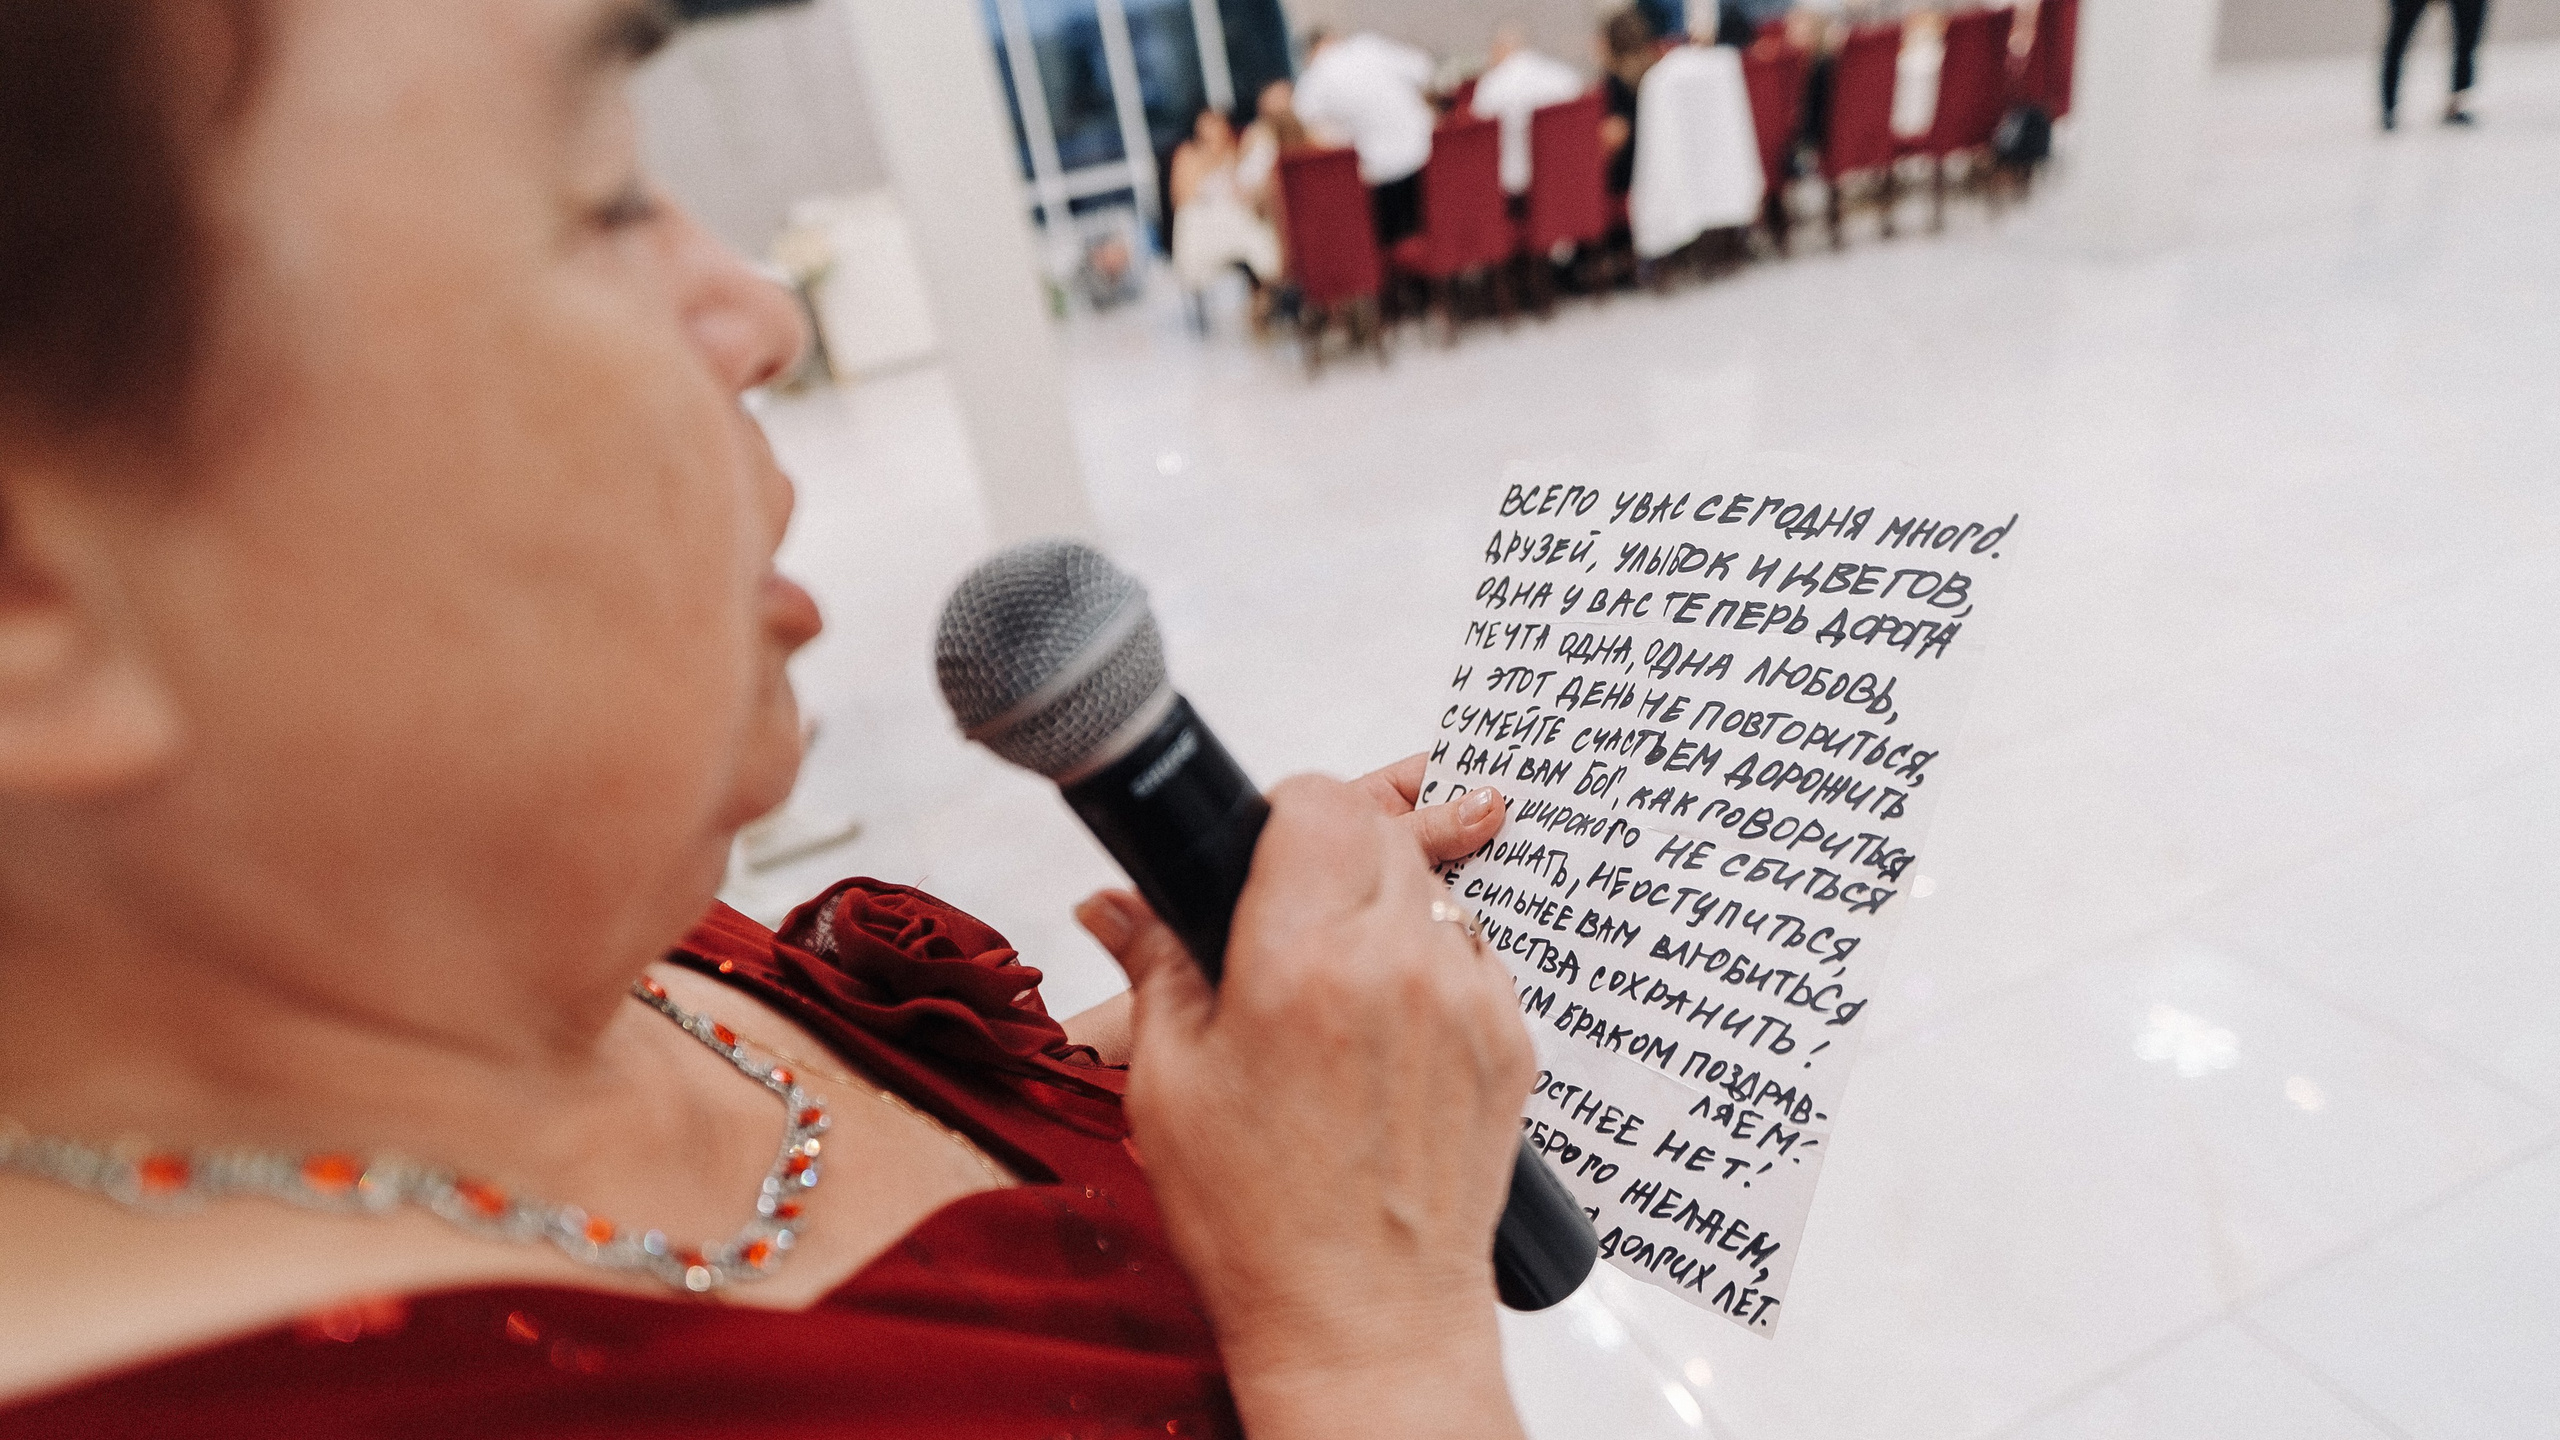 ВСЕГО У ВАС СЕГОДНЯ МНОГО!
ДРУЗЕЙ, УЛЫБОК И ЦВЕТОВ,
ОДНА У ВАС ТЕПЕРЬ ДОРОГА
МЕЧТА ОДНА, ОДНА ЛЮБОВЬ,
И ЭТОТ ДЕНЬ НЕ ПОВТОРИТЬСЯ,
СУМЕЙТЕ СЧАСТЬЕМ ДОРОЖИТЬ
И ДАЙ ВАМ БОГ, КАК ГОВОРИТЬСЯ
С ШИРОКОГО НЕ СБИТЬСЯ
НЕ ОСТУПИТЬСЯ,
СИЛЬНЕЕ ВАМ ВЛЮБИТЬСЯ
ЧУВСТВА СОХРАНИТЬ!
БРАКОМ ПОЗДРАВ-
ЛЯЕМ!
НЕТ!
ЖЕЛАЕМ,
ДОЛГИХ ЛЕТ.